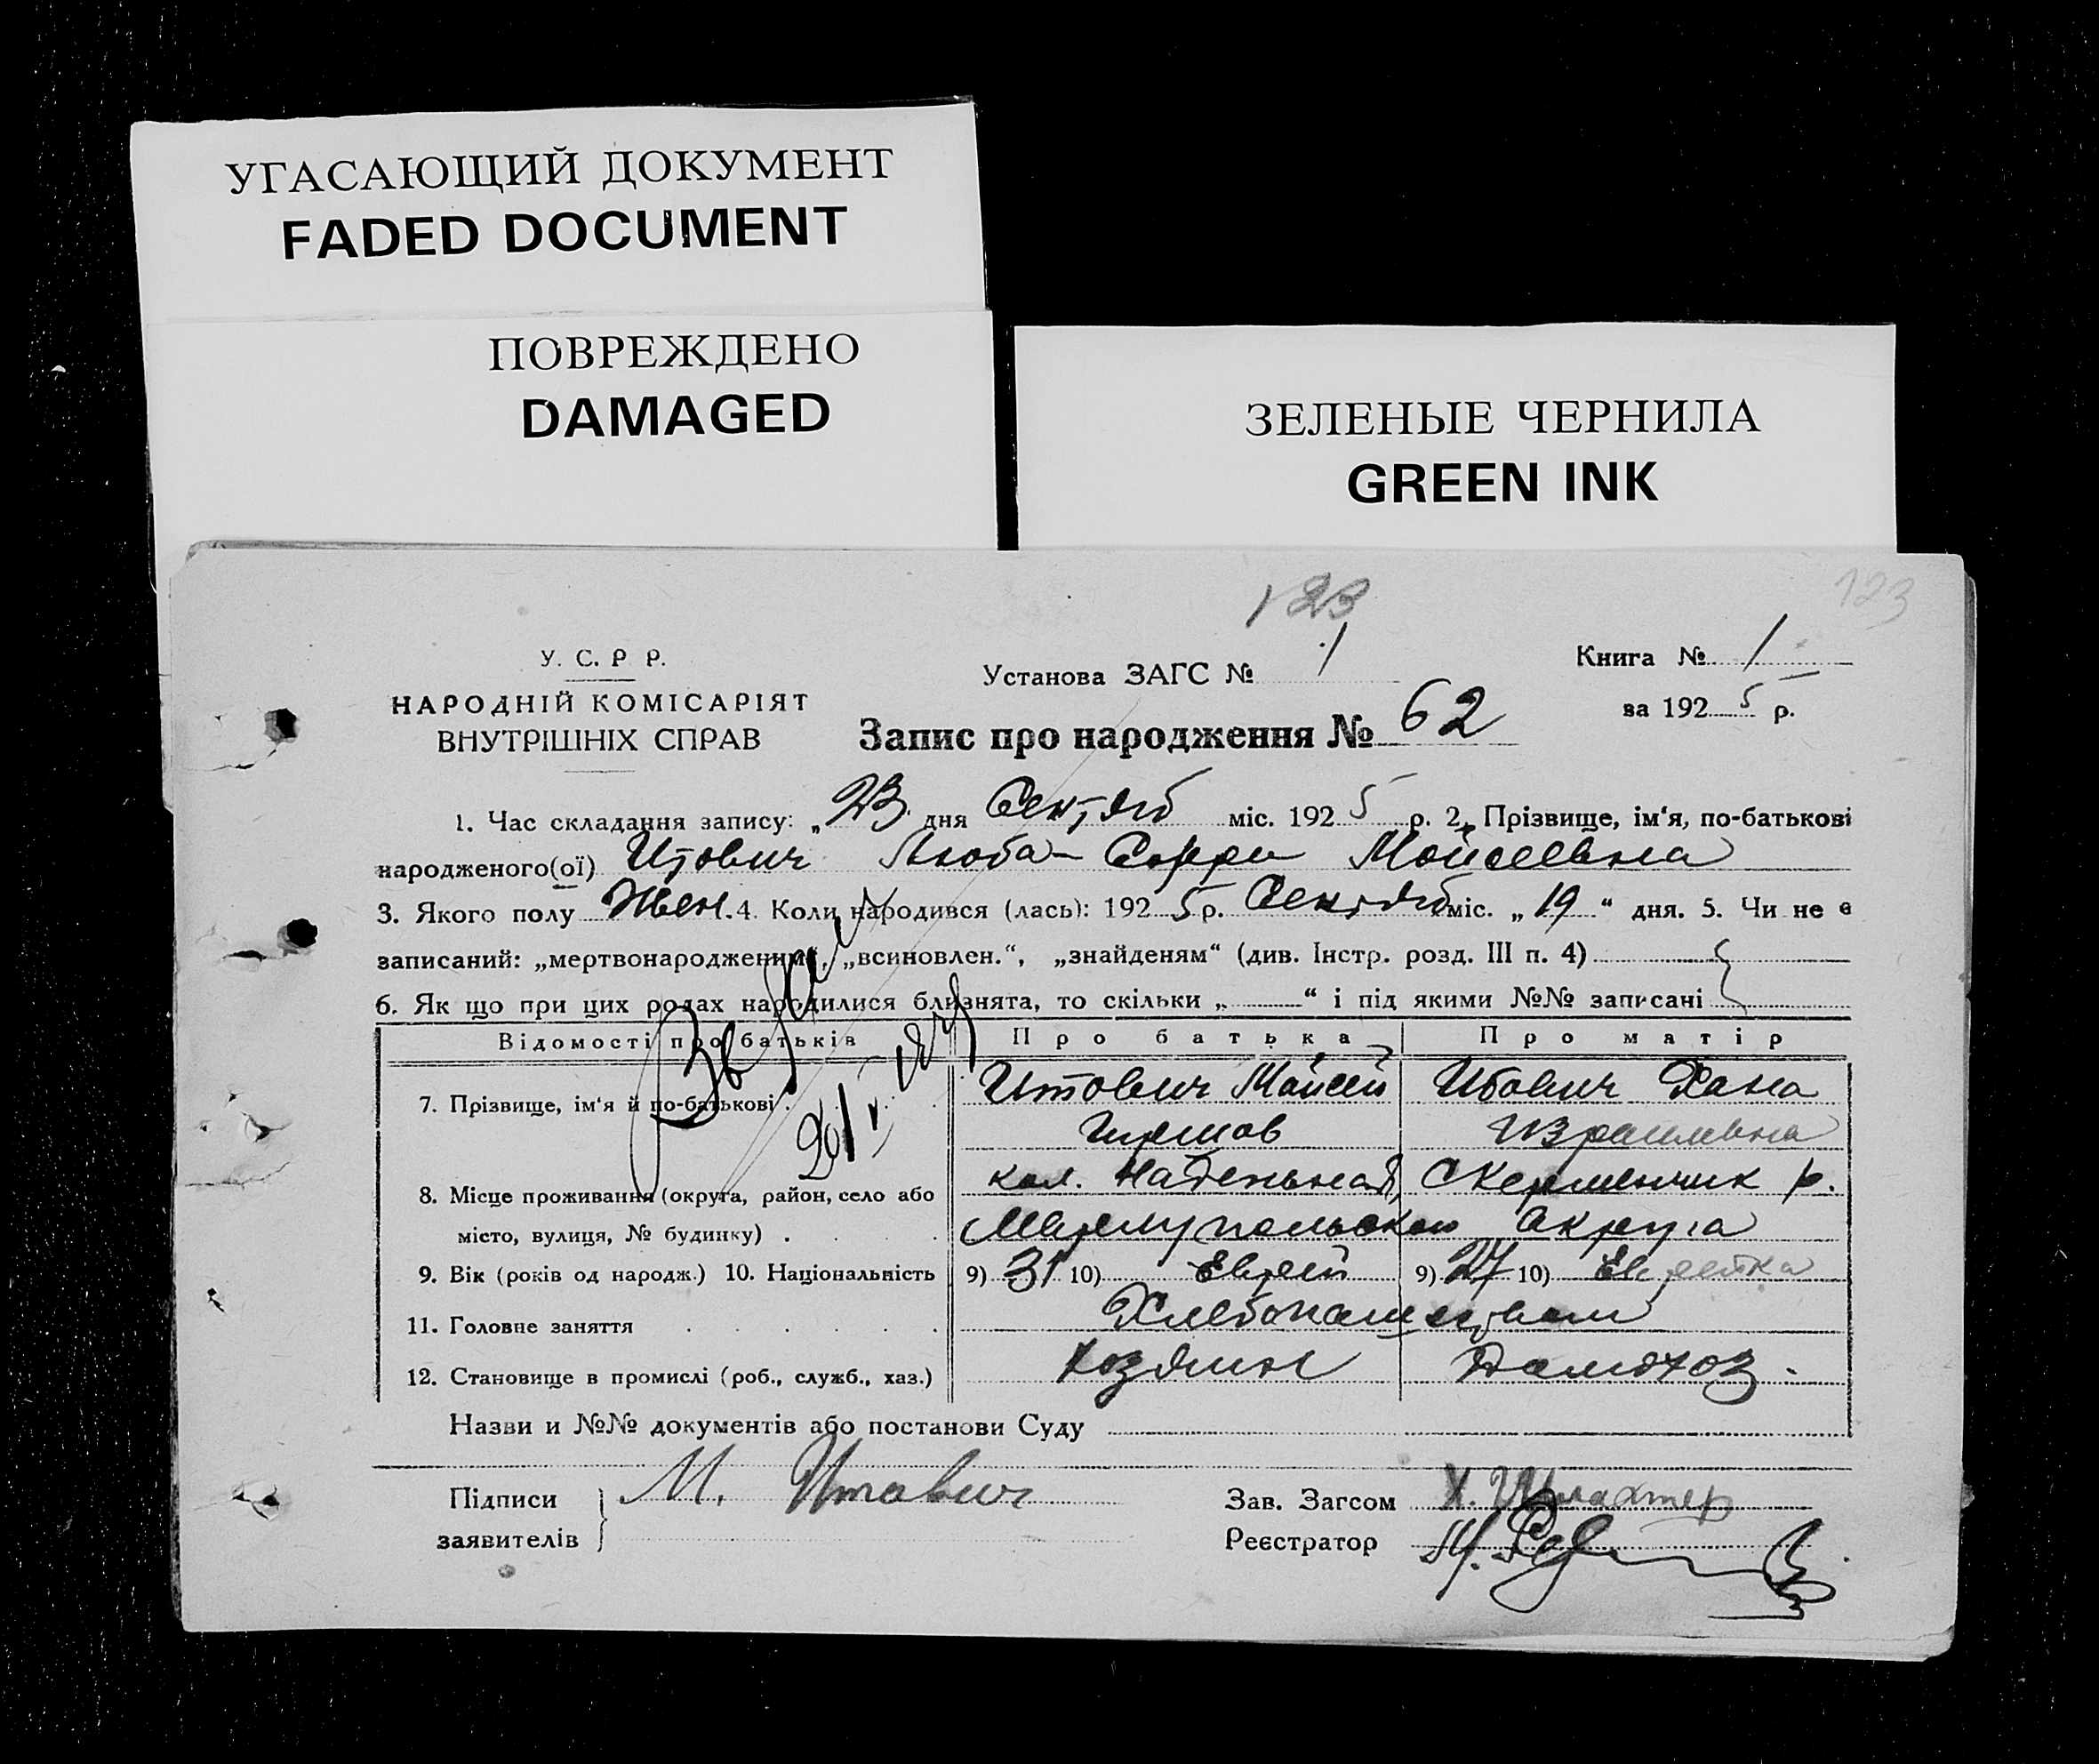 УГАСАЮЩИЙ ДОКУМЕНТ
FADED DOCUMENT
ПОВРЕЖДЕНО
DAMAGED
ЗЕЛЕНЫЕ ЧЕРНИЛА
GREEN INK
123
123
У. С. Р Р.
НАРОДНІЙ КОМІСАРІЯТ
ВНУТРІШНІХ СПРАВ
Установа ЗАГС № 1
Книга № 1
за 1925 р.
Запис про народження № 62
1. Час складання запису: „23 дня Сентяб міс. 1925 р. 2. Прізвище, ім‘я, по-батькові
народженого(ої) Итович Люба- Мойсеевна
3. Якого полу Жен. 4. Коли народився (лась): 1925 р. Сентяб міс. „19“ дня. 5. Чи не є
записаний: „мертвонародженим“, „всиновлен.“, „знайденям“ (див. Інстр. розд. III п. 4)
6. Як що при цих родах народилися близнята, то скільки „ “ і під якими №№ записані
Відомості про батьків Про батька Про матір
7. Прізвище, ім‘я й по-батькові Итович Мойсей Хана
Гиршов Израилевна
8. Місце проживання (округа, район, село або кол. Надежная, Скерменчик р.
місто, вулиця, № будинку) Мариупольского Округа
9. Вік (років од народж.) 10. Національність 9) 31 10) Еврей 9) 27 10) Еврейка
11. Головне заняття Хлебопашество
12. Становище в промислі (роб., служб., хаз.) Хозяин Домохоз.
Назви и №№ документів або постанови Суду
Підписи заявителів М. Итович
Зав. Загсом Х. Шлахтер
Реєстратор